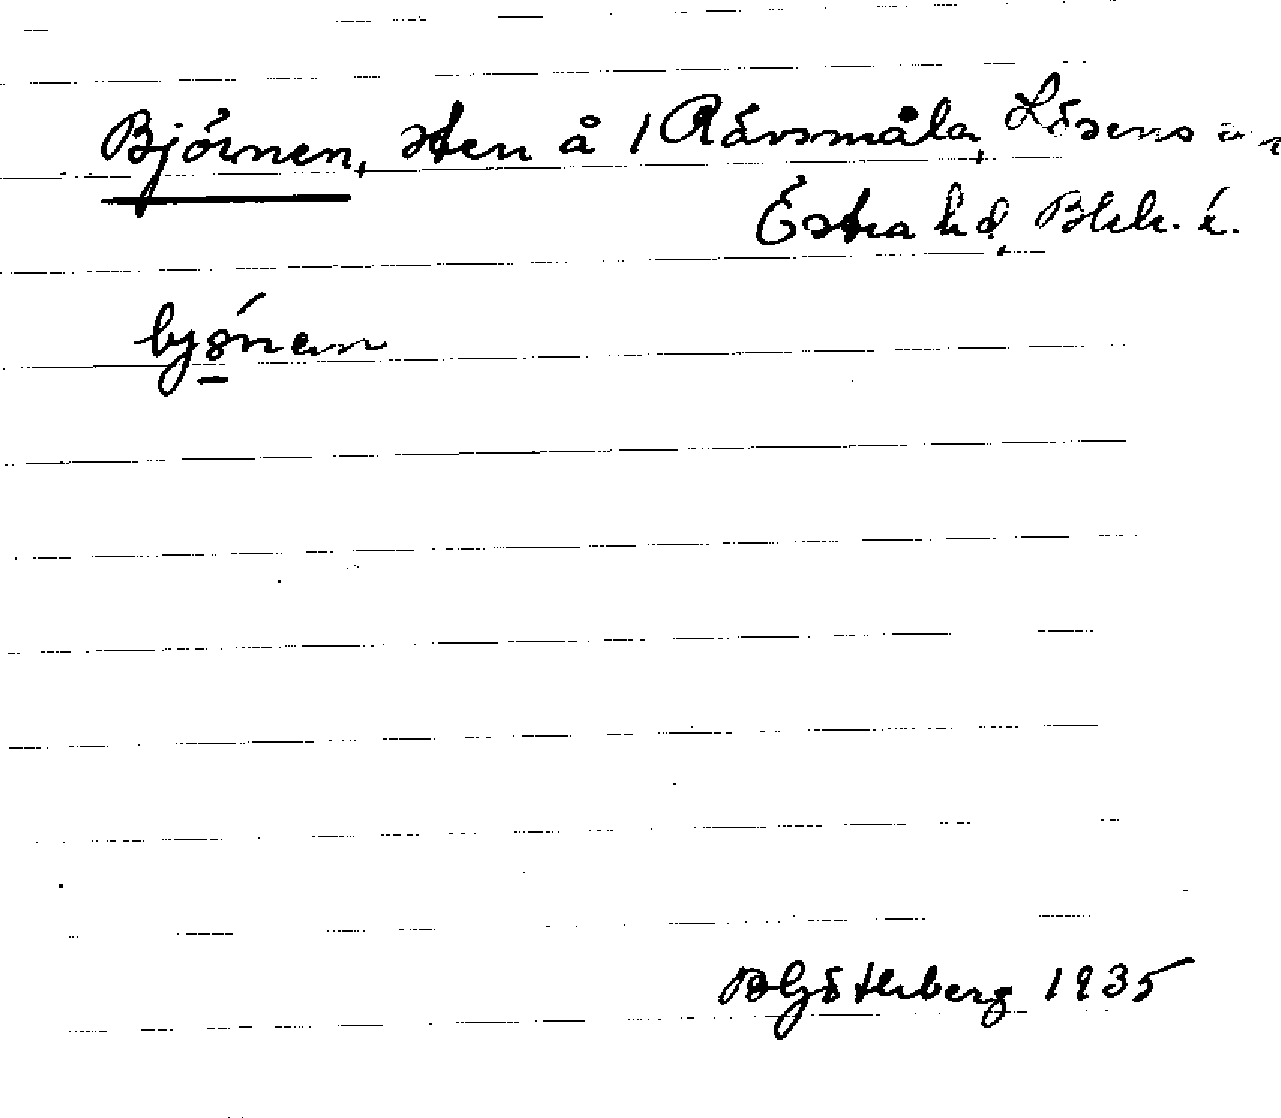 Björnen, sten å 1 Rävsmåla, Lösens sn
Östra hd, Blek. l.
bjö̱́nan
B Götlherberg 1935